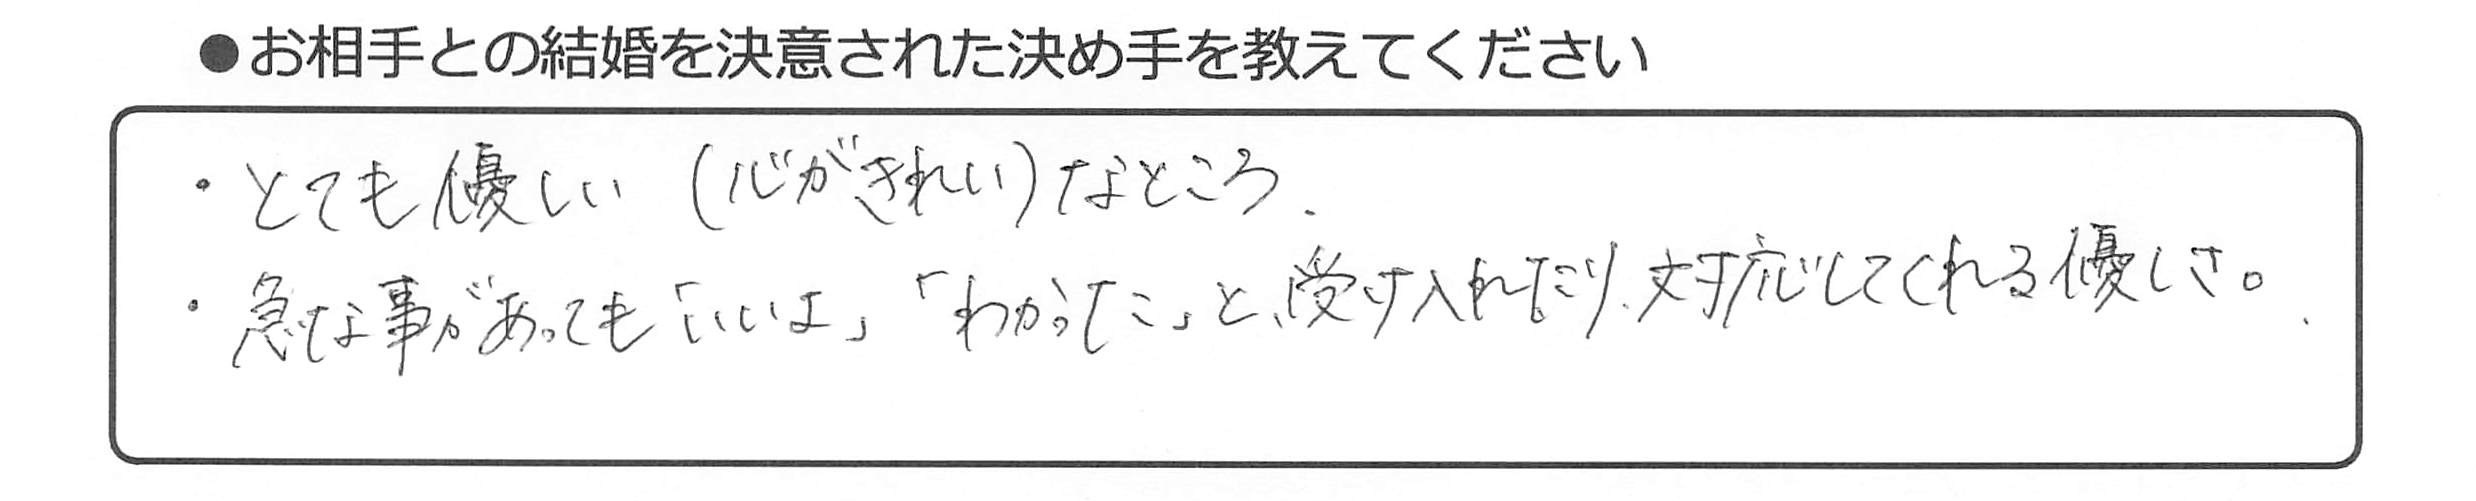 ●お相手との結婚を決意された決め手を教えてください
・とても優しい（心がきれい）なところ.
・急な事があっても「いいよ」「わかった」と、受け入れたり、対応してくれる優しさ。